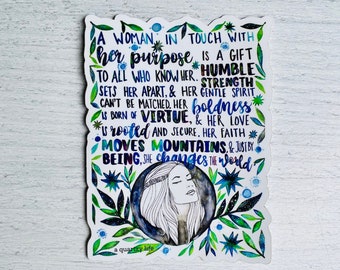 A WOMAN IN TOUCH WITH
her purpose IS A GIFT
TO ALL WHO KNOW HER. HUMBLE
STRENGTH
SETS HER APART, & HER GENTLE SPIRIT
CAN'T BE MATCHED. HER boldness
IS BORN OF VIRTUE, & HER LOVE
IS rooted AND SECURE. HER FAITH
MOVES MOUNTAINS, & JUST BY
BEING, She changes THE World.
a quartey life